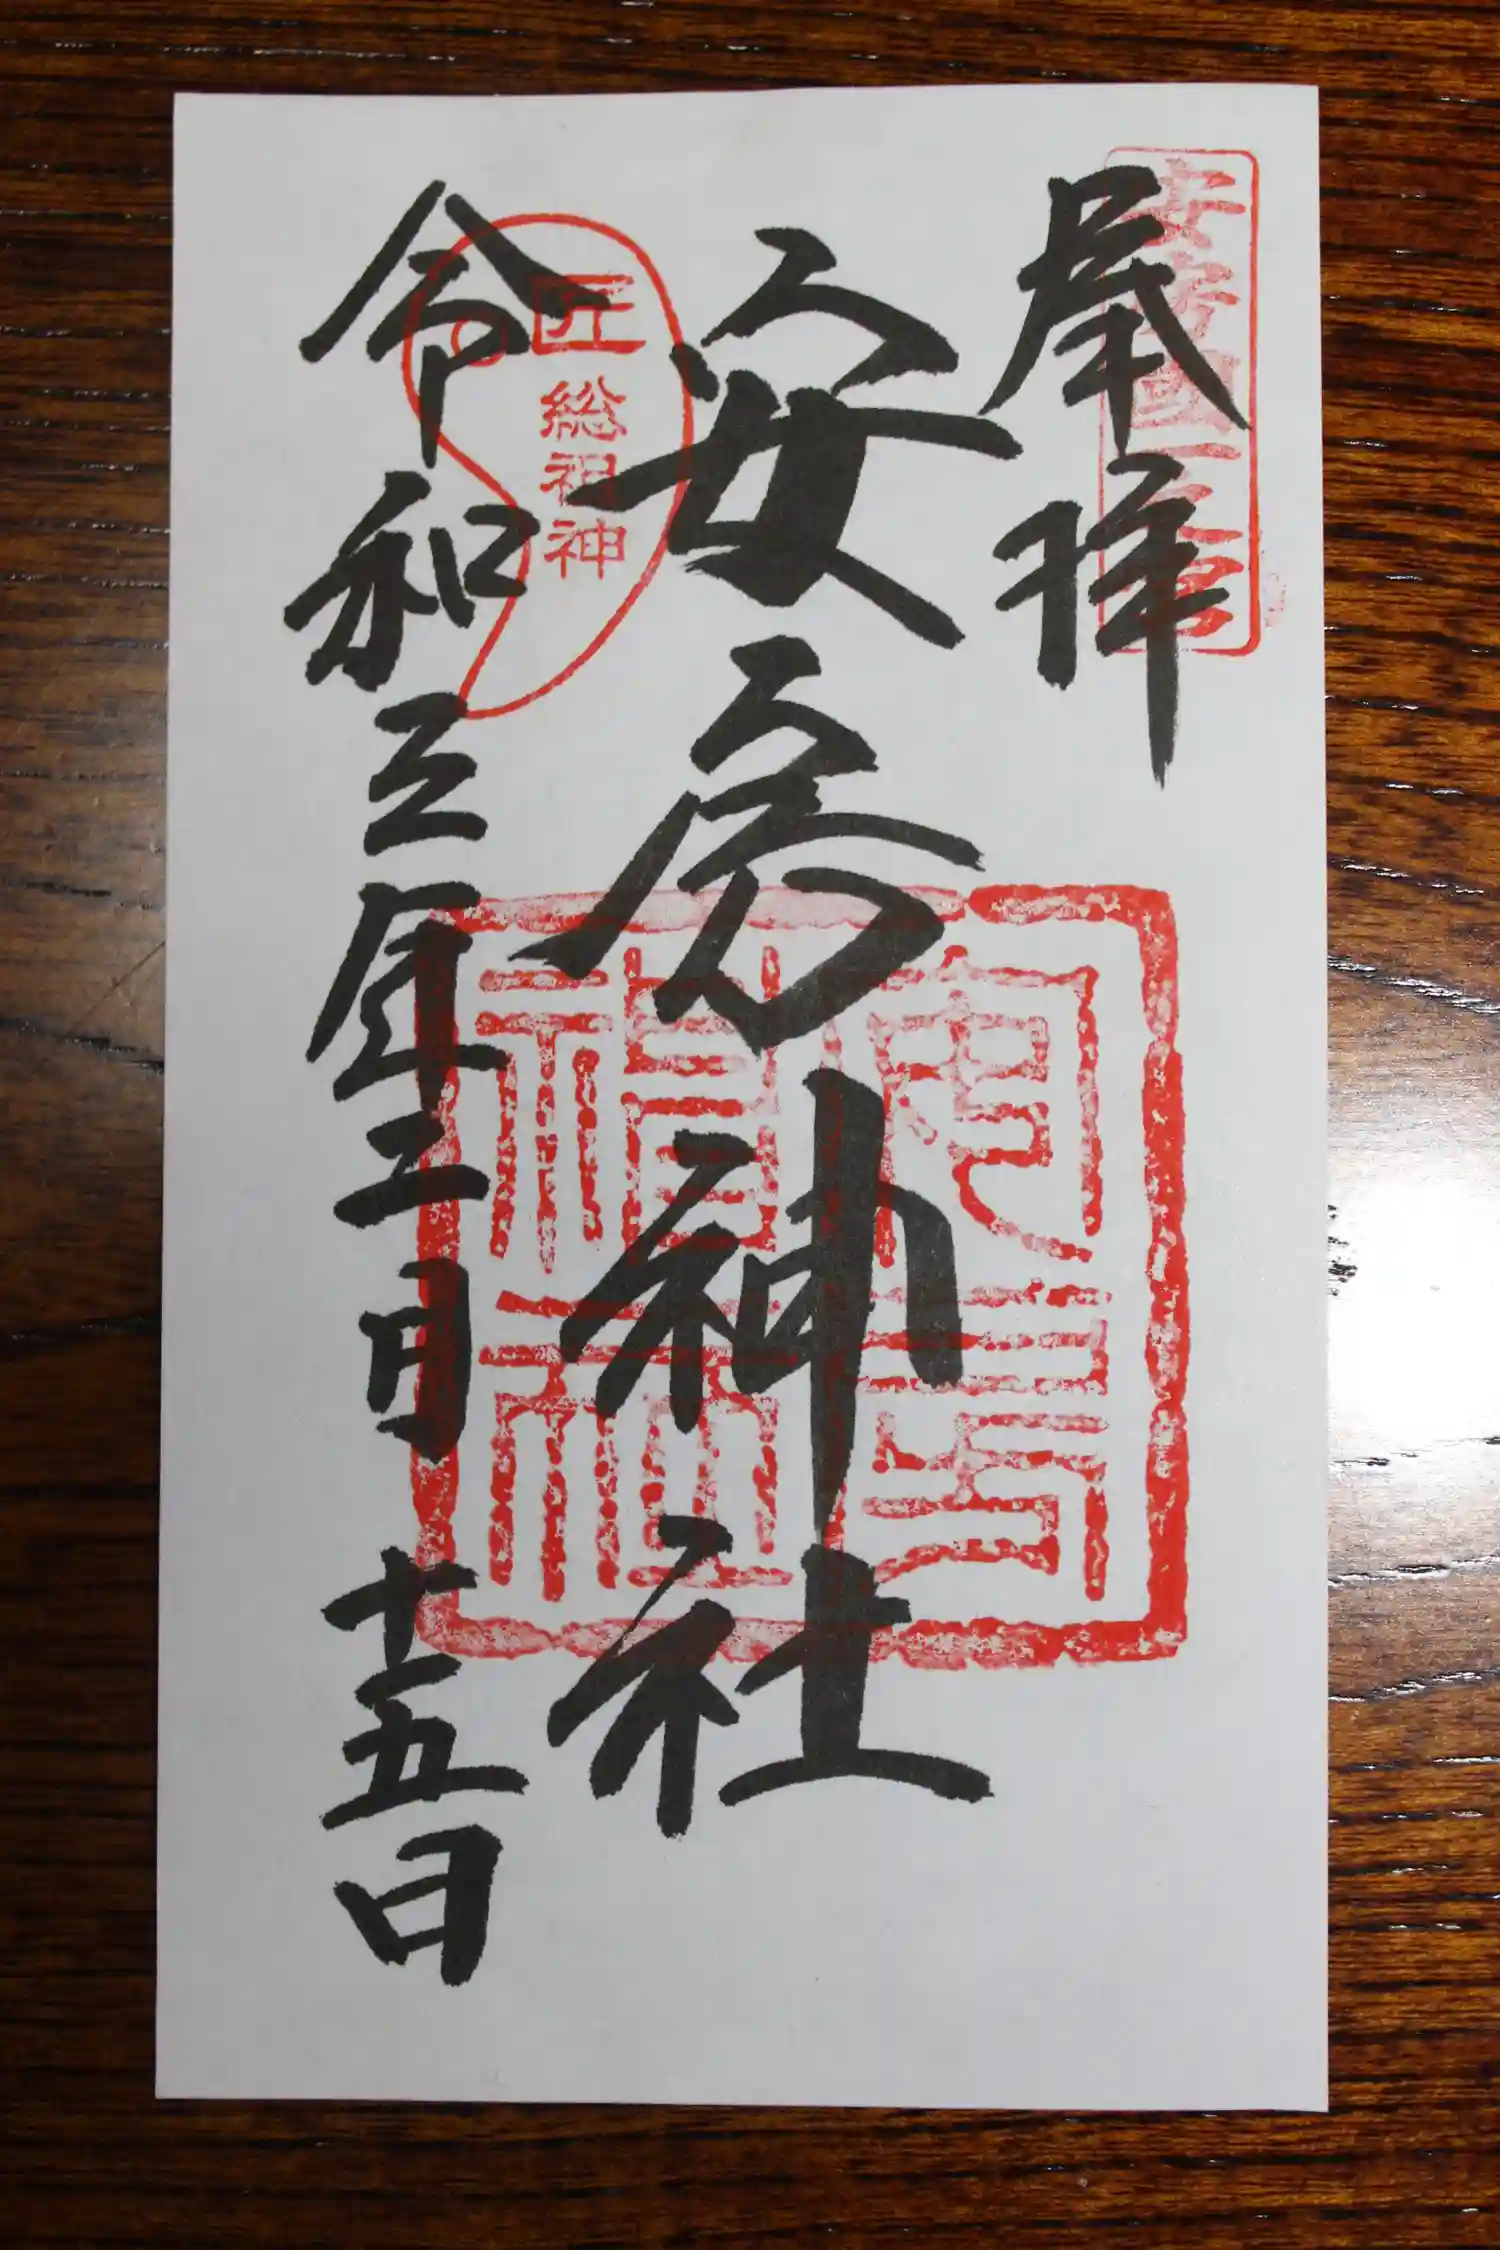 奉拝
安房国一之宮
安房神社
匠総祖神
令和三年二月十五日